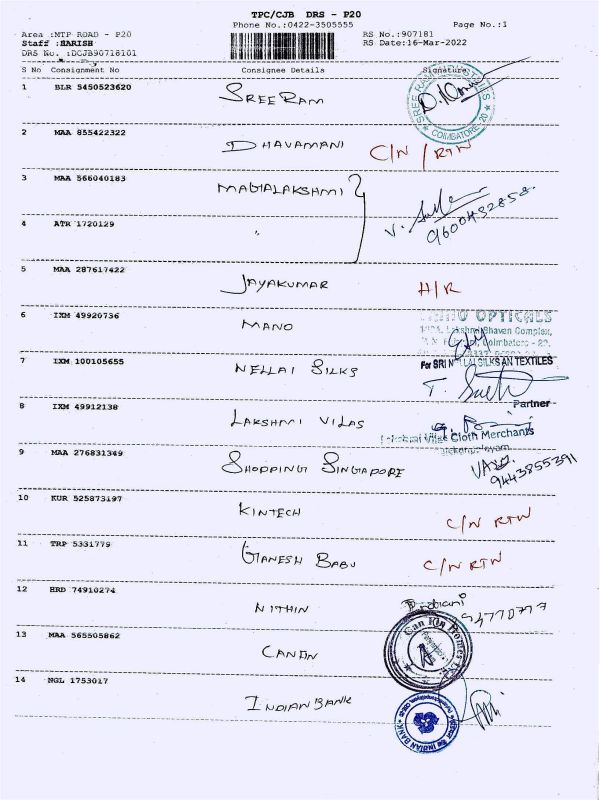 TPC/CJB DRS - P20
Phone No.:0422-3505555 Page No.:1
Area :MTP ROAD - P20 RS No.:907181
Staff :HARISH RS Date:16-Mar-2022
DRS No. :DCJB90718101
S No Consignment No Consignee Details Signature
1 BLR 5450523620 SREE RAM
COIMBATORE-20
2 MAA 855422322 DHAVAMANI C/N / RTN
3 MAA 566040183 MAHALAKSHMI
4 ATR 1720129 "
5 MAA 287617422 JAYAKUMAR H/R
6 IXM 49920736 MANO
OPTICALS
Lakshmi Bhaven Complex,
Coimbatore - 20.
7 IXM 100105655 NELLAI SILKS
Partner
8 IXM 49912138 LAKSHMI VILAS
Cloth Merchants
9 MAA 276831349 SHOPPING SINGAPORE
9443855391
10 KUR 525873197 KINTECH C/N RTN
11 TRP 5331779 GANESH BABU C/N RTN
12 HRD 74910274 NITHIN
13 MAA 565505862 CANFIN
Can Fin Homes Ltd
14 NGL 1753017 INDIAN BANK
INDIAN BANK